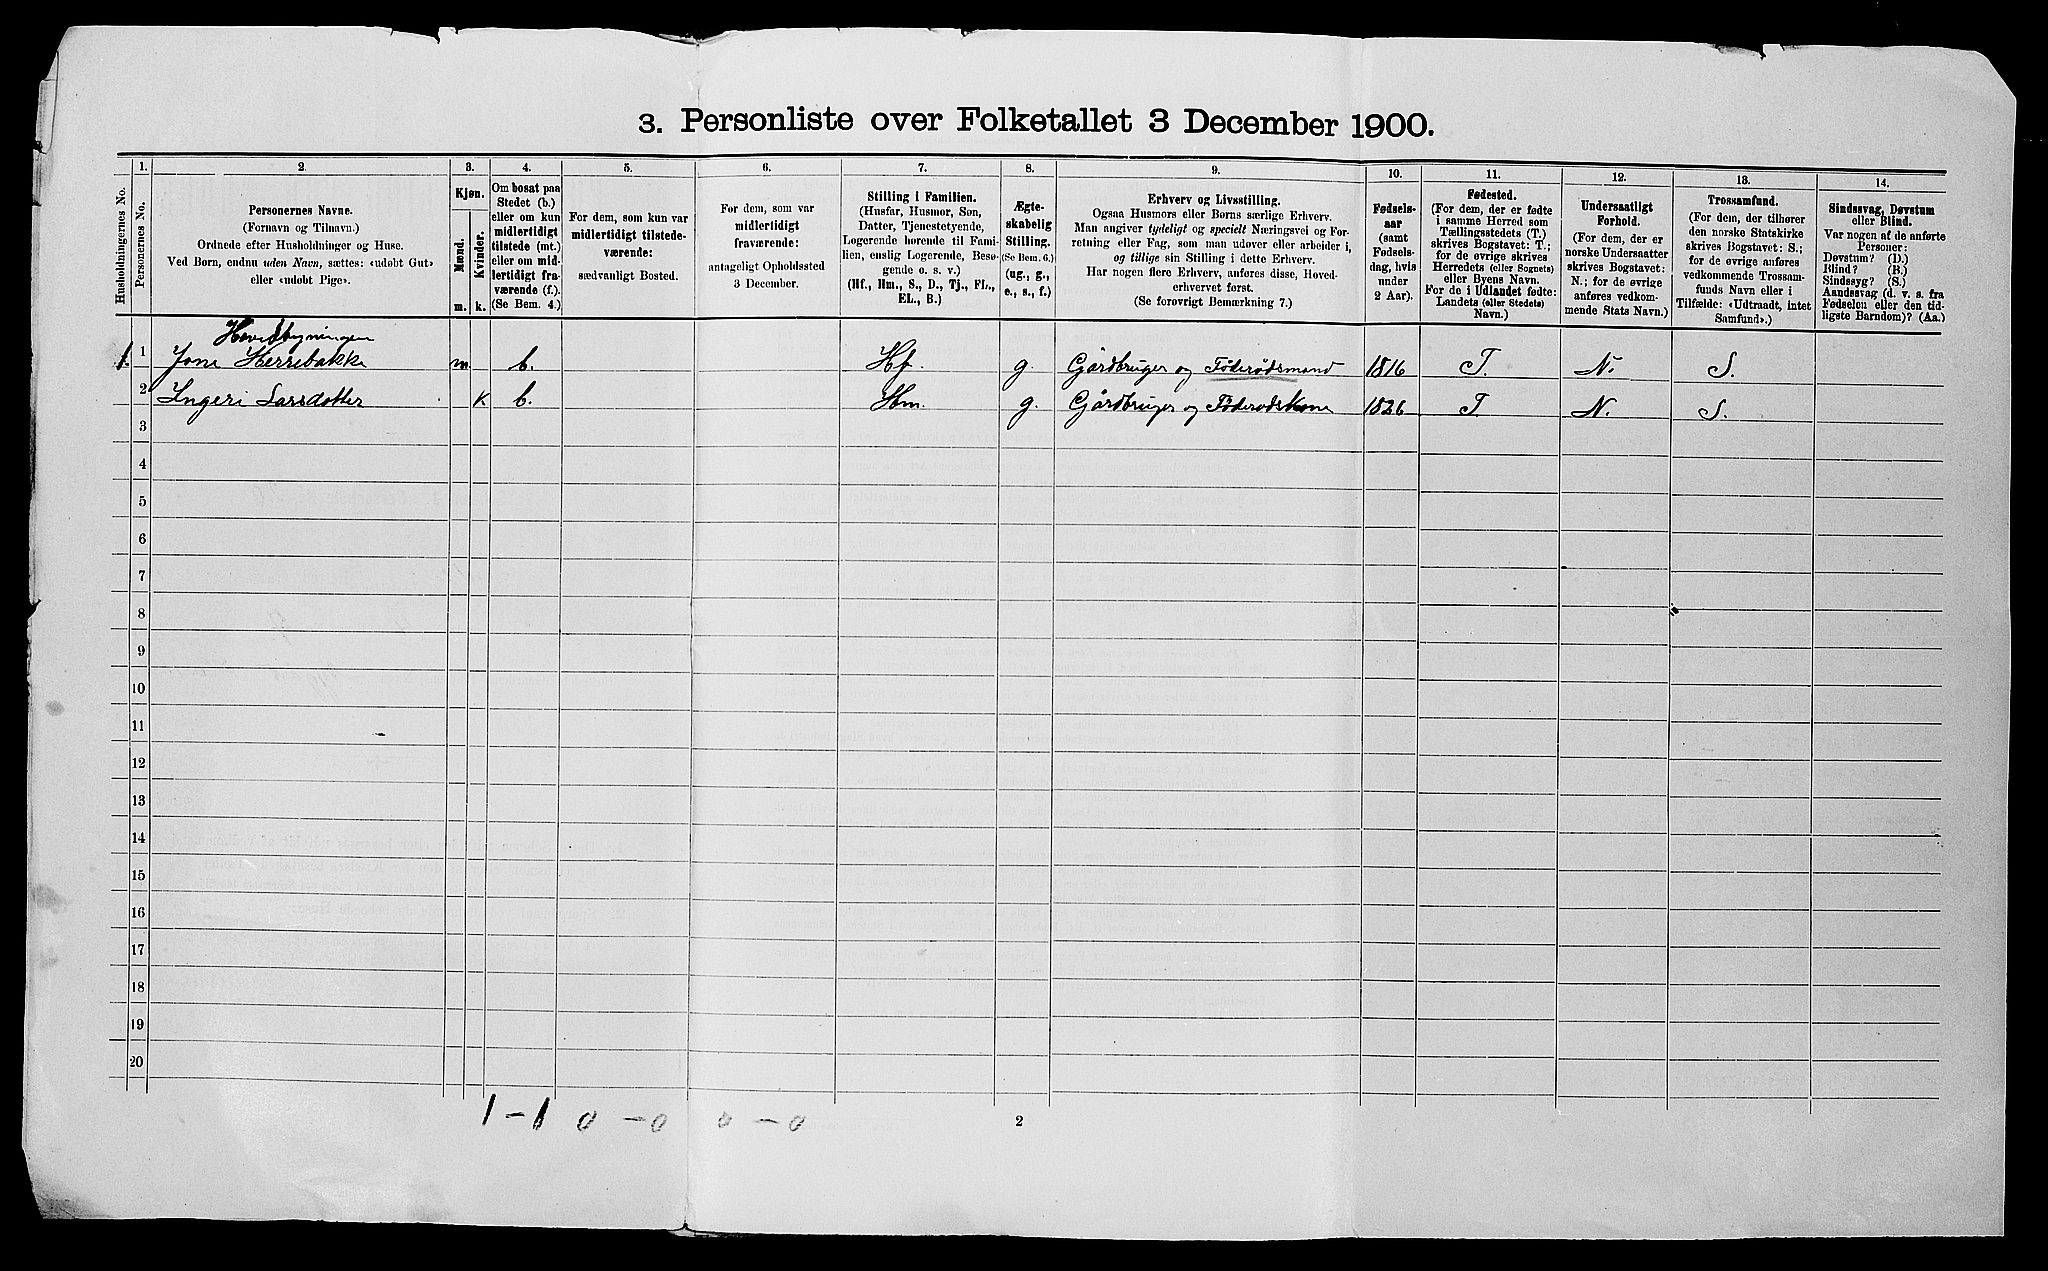 3. Personliste over Folketallet 3 December 1900.
Husholdningernes No.
1.
Personernes No.
2.
Personernes Navne.
(Fornavn og Tilnavn.)
Ordnede efter Husholdninger og Huse.
Ved Børn, endnu uden Navn, sættes: «udøbt Gut»
eller «udøbt Pige».
3.
Kjøn.
Mænd.
m.
Kvinder.
k.
4.
Om bosat paa
Stedet (b.)
eller om kun
midlertidigt
tilstede (mt.)
eller om mid-
lertidigt fra-
værende (f.).
(Se Bem. 4.)
5.
For dem, som kun var
midlertidigt tilstede-
værende:
sædvanligt Bosted.
6.
For dem, som var
midlertidigt
fraværende:
antageligt Opholdssted
3 December.
7.
Stilling i Familien.
(Husfar, Husmor, Søn,
Datter, Tjenestetyende,
Logerende hørende til Fami-
lien, enslig Logerende, Besø-
gende o. s. v.)
(Hf., Hm., S., D., Tj., FL.,
EL., B.)
8.
Ægte-
skabelig
Stilling.
(Se Bem. 6.)
(ug., g.,
e., s., f.)
9.
Erhverv og Livsstilling.
Ogsaa Husmors eller Børns særlige Erhverv.
Man angiver tydeligt og specielt Næringsvei og For-
retning eller Fag, som man udøver eller arbeider i,
og tillige sin Stilling i dette Erhverv.
Har nogen flere Erhverv, anføres disse, Hoved-
erhvervet først.
(Se forøvrigt Bemærkning 7.)
10.
Fødsels-
aar
(samt
Fødsels-
dag, hvis
under
2 Aar).
11.
Fødested.
(For dem, der er fødte
i samme Herred som
Tællingsstedets (T.)
skrives Bogstavet: T.;
for de øvrige skrives
Herredets (eller Sognets)
eller Byens Navn.
For de i Udlandet fødte:
Landets (eller Stedets)
Navn.)
12.
Undersaatligt
Forhold.
(For dem, der er
norske Undersaatter
skrives Bogstavet:
N.; for de øvrige
anføres vedkom-
mende Stats Navn.)
13.
Trossamfund.
(For dem, der tilhører
den norske Statskirke
skrives Bogstavet: S.;
for de øvrige anføres
vedkommende Trossam-
funds Navn eller i
Tilfælde: «Udtraadt, intet
Samfund».)
14.
Sindssvag, Døvstum
eller Blind.
Var nogen af de anførte
Personer:
Døvstum? (D.)
Blind? (B.)
Sindssyg? (S.)
Aandssvag (d. v. s. fra
Fødselen eller den tid-
ligste Barndom)? (Aa.)
Hovedbygningen
1. 1 Jone Herrebakke m. b. Hf. g. Gårdbruger og Föderådsmand 1816 T. N. S.
2 Ingeri Larsdotter K b. Hm. g. Gårdbruger og Föderadskone 1826 T N. S.
3
4
5
6
7
8
9
10
11
12
13
14
15
16
17
18
19
20
1 - 1 0 - 0 0 - 0
2